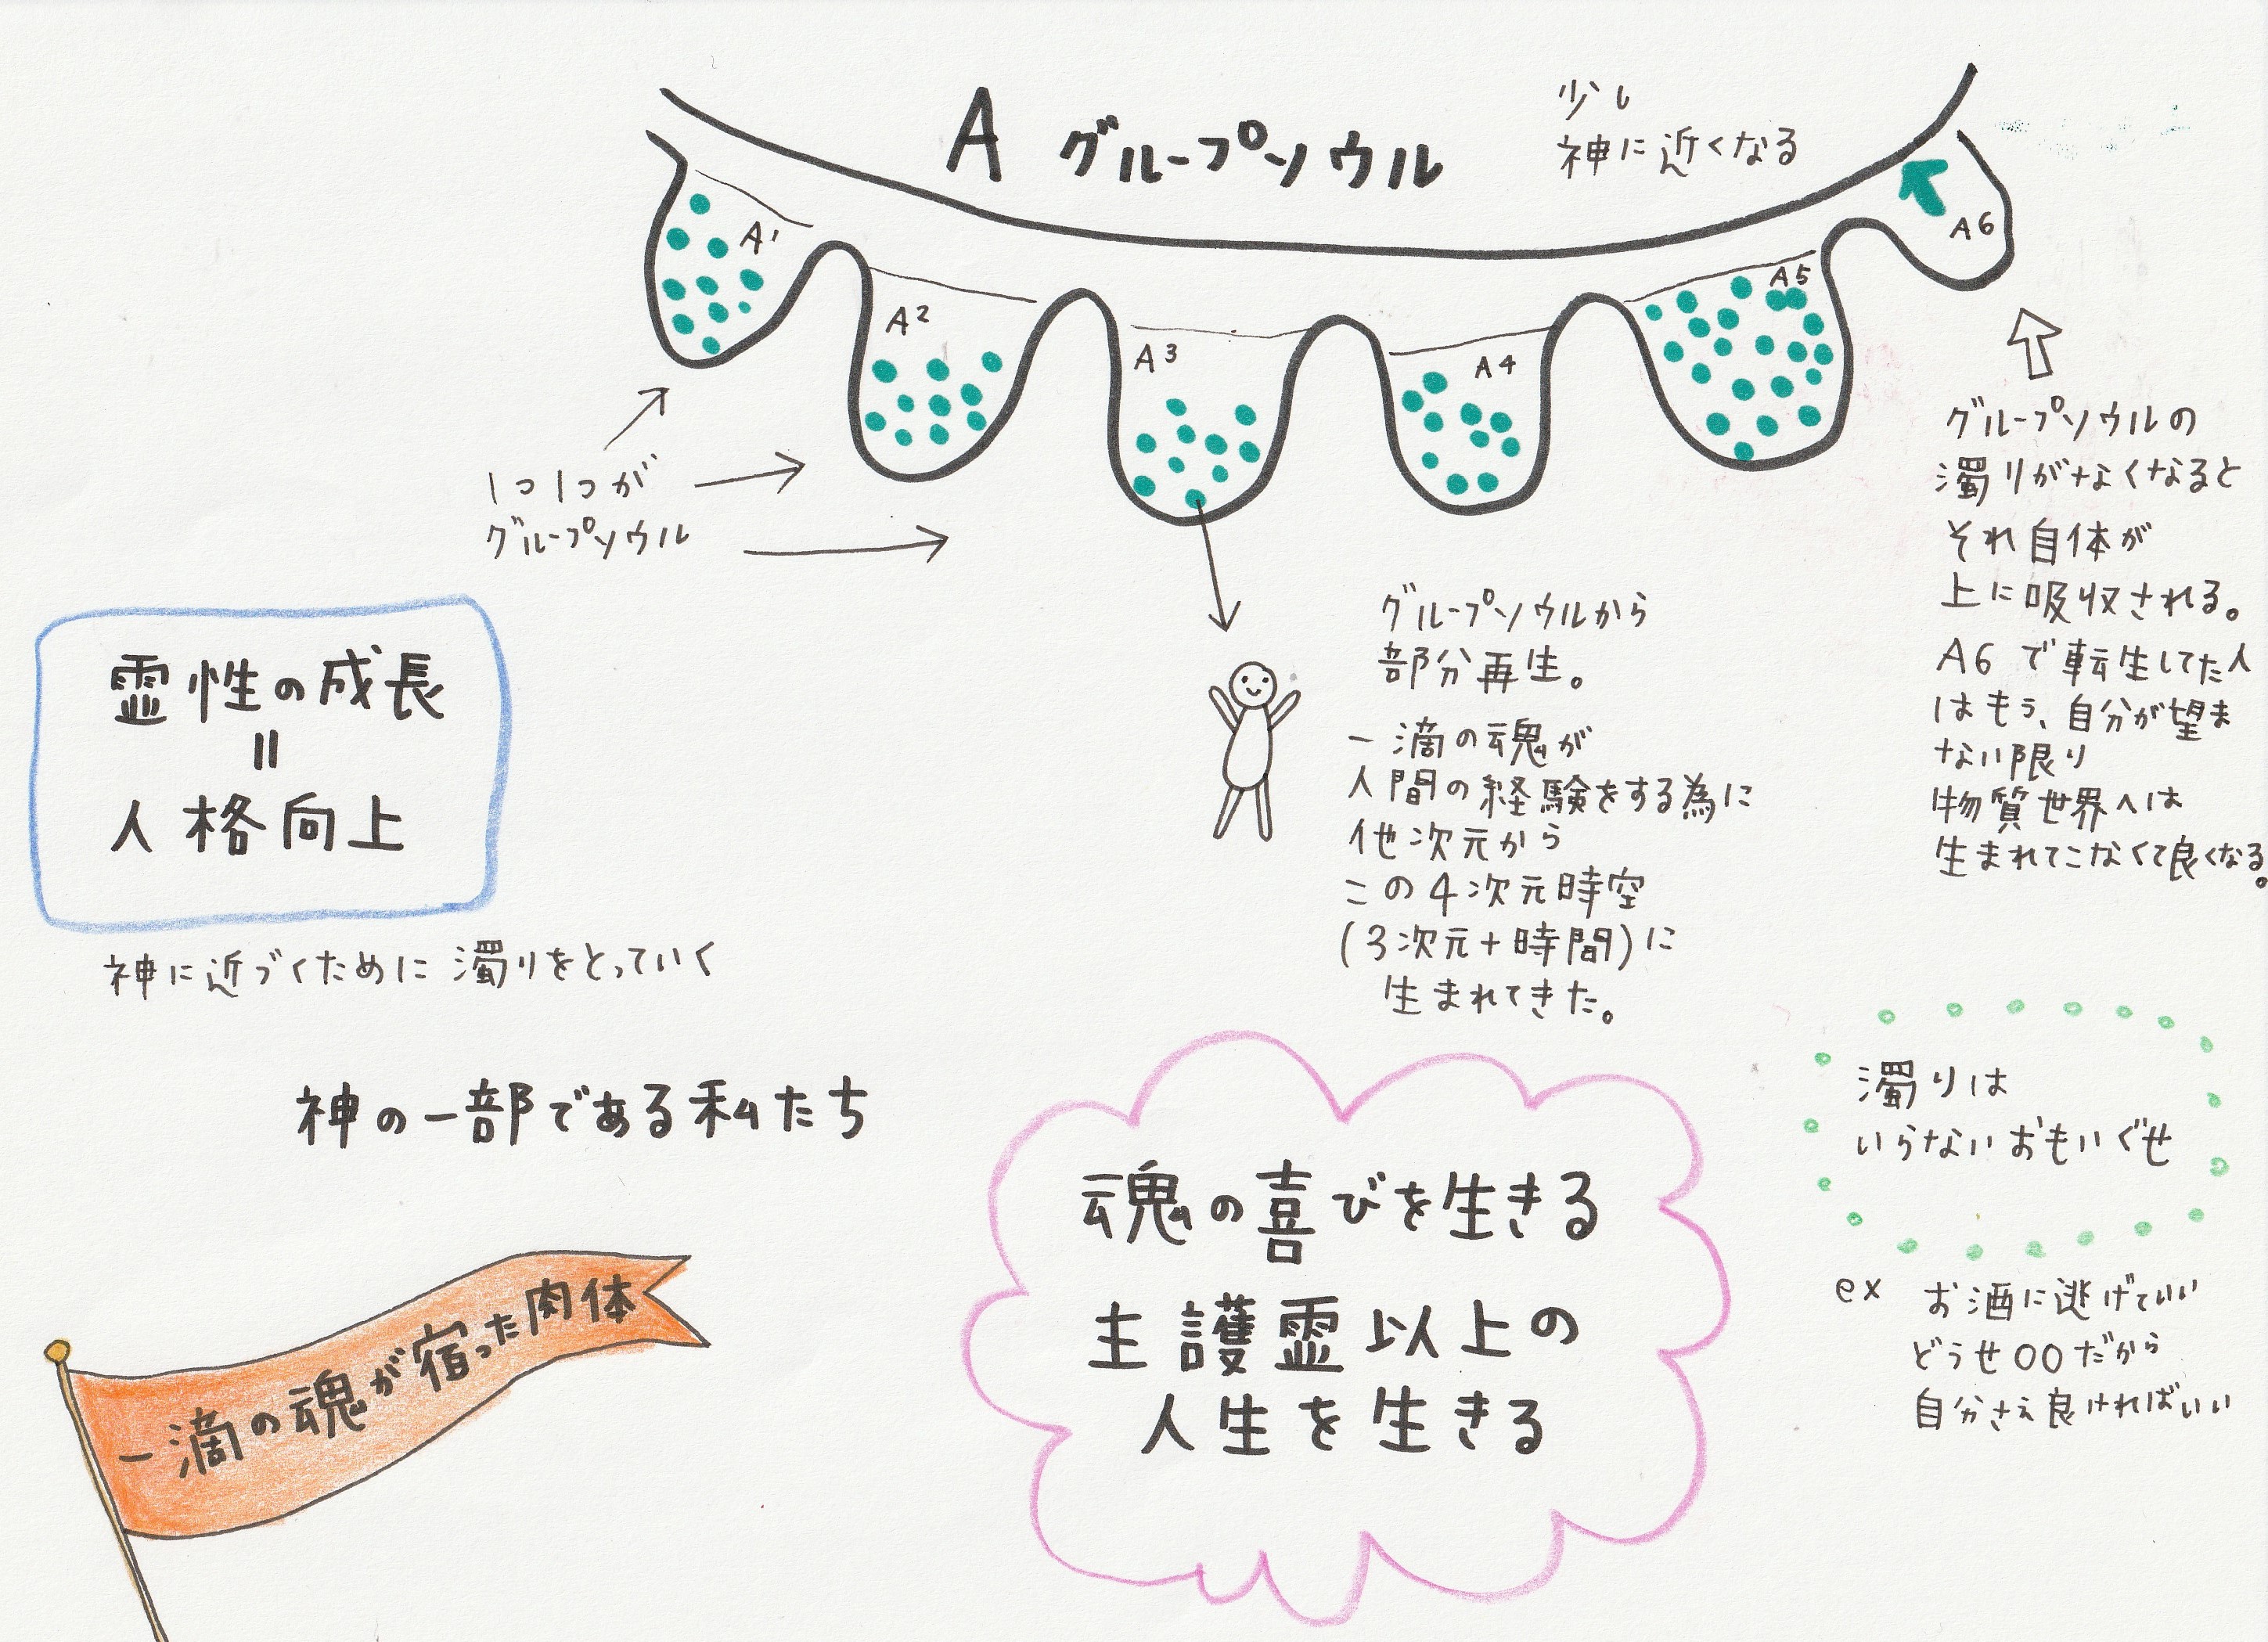 A グループソウル
少し
神に近くなる
A1
A2
A3
A4
A5
A6
1つ1つが
グループソウル
グループソウルの
濁りがなくなると
それ自体が
上に吸収される。
A6で転生してた人
はもう、自分が望ま
ない限り
物質世界へは
生まれてこなくて良くなる。
グループソウルから
部分再生。
一滴の魂が
人間の経験をする為に
他次元から
この4次元時空
(3次元+時間)に
生まれてきた。
霊性の成長
=
人格向上
神に近づくために濁りをとっていく
神の一部である私たち
一滴の魂が宿った肉体
魂の喜びを生きる
主護霊以上の
人生を生きる
濁りは
いらないおもいぐせ
ex お酒に逃げていい
どうせ〇〇だから
自分さえ良ければいい